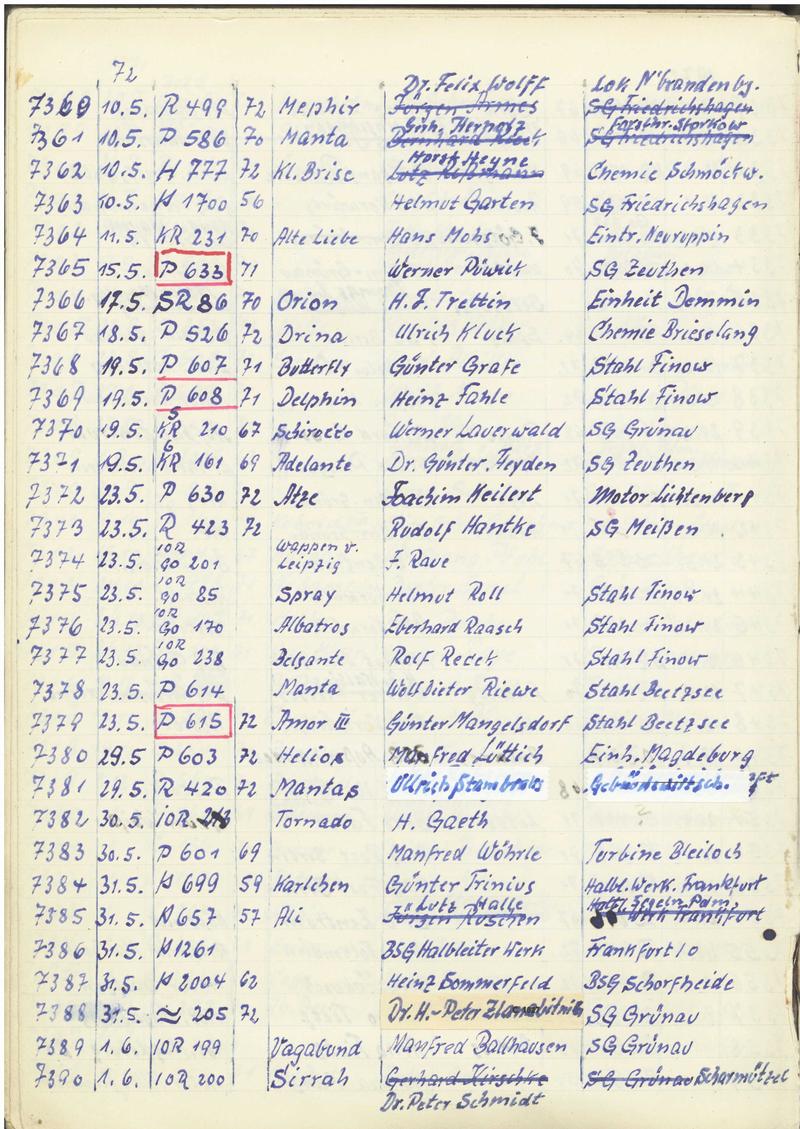 72
Dr. Felix Wolff Lok N'brandenbg.
7360 10.5. R 499 72 Mephir Jürgen SG Friedrichshagen
Herpolz Forstw. Storkow
7361 10.5. P 586 70 Manta Bernhard SG Friedrichshagen
Horst Heyne
7362 10.5. H 777 72 Kl. Brise Lutz Chemie Schmöckw.
7363 10.5. H 1700 56 Helmut Garten SG Friedrichshagen
7364 11.5. KR 231 70 Alte Liebe Hans Mohs Eintr. Neuruppin
7365 15.5. P 633 71 Werner Püwick SG Zeuthen
7366 17.5. SR 86 70 Orion H. J. Trettin Einheit Demmin
7367 18.5. P 526 72 Drina Ulrich Kluck Chemie Brieselang
7368 19.5. P 607 71 Butterfly Günter Grafe Stahl Finow
7369 19.5. P 608 71 Delphin Heinz Fahle Stahl Finow
5
7370 19.5. KR 210 67 Schirokko Werner Lauerwald SG Grünau
6
7371 19.5. KR 161 69 Adelante Dr. Günter Heyden SG Zeuthen
7372 23.5. P 630 72 Atze Joachim Keilert Motor Lichtenberg
7373 23.5. R 423 72 Rudolf Hantke SG Meißen
10R Wappen v.
7374 23.5. go 201 Leipzig F. Rave
10R
7375 23.5. go 85 Spray Helmut Roll Stahl Finow
10R
7376 23.5. Go 170 Albatros Eberhard Raasch Stahl Finow
10R
7377 23.5. Go 238 Rolf Recek Stahl Finow
7378 23.5. P 614 Manta Wolf Dieter Riewe Stahl Beetzsee
7379 23.5. P 615 72 Amor III Günter Mangelsdorf Stahl Beetzsee
7380 29.5 P 603 72 Helios Manfred Lüttich Einh. Magdeburg
7381 29.5. R 420 72 Mantas Ullrich
7382 30.5. 10R Tornado H. Gaeth
7383 30.5. P 601 69 Manfred Wöhrle Turbine Bleiloch
7384 31.5. H 699 59 Karlchen Günter Trinius Halbl. Werk. Frankfurt
Lutz Halle Segeln Pdm.
7385 31.5. H 657 57 Ali Jürgen Ruschen Werk Frankfurt
7386 31.5. H 1261 BSG Halbleiter Werk Frankfurt/O
7387 31.5. H 2004 62 Heinz Sommerfeld BSG Schorfheide
7388 31.5. ≃ 205 72 Dr. H.-Peter SG Grünau
7389 1.6. 10R 199 Vagabund Manfred Ballhausen SG Grünau
7390 1.6. 10R 200 Sirrah Gerhard Kirschke SG Grünau Scharmützel
Dr. Peter Schmidt